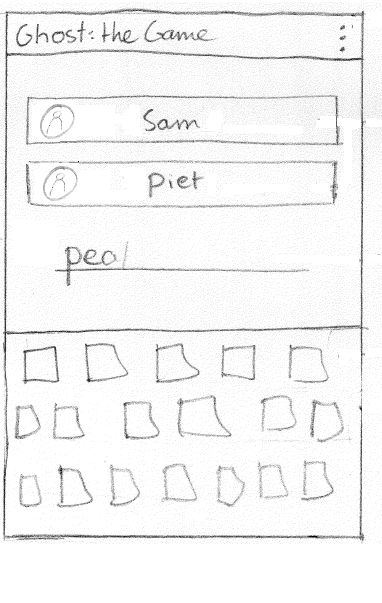 Ghost: the Game
Sam
Piet
pea